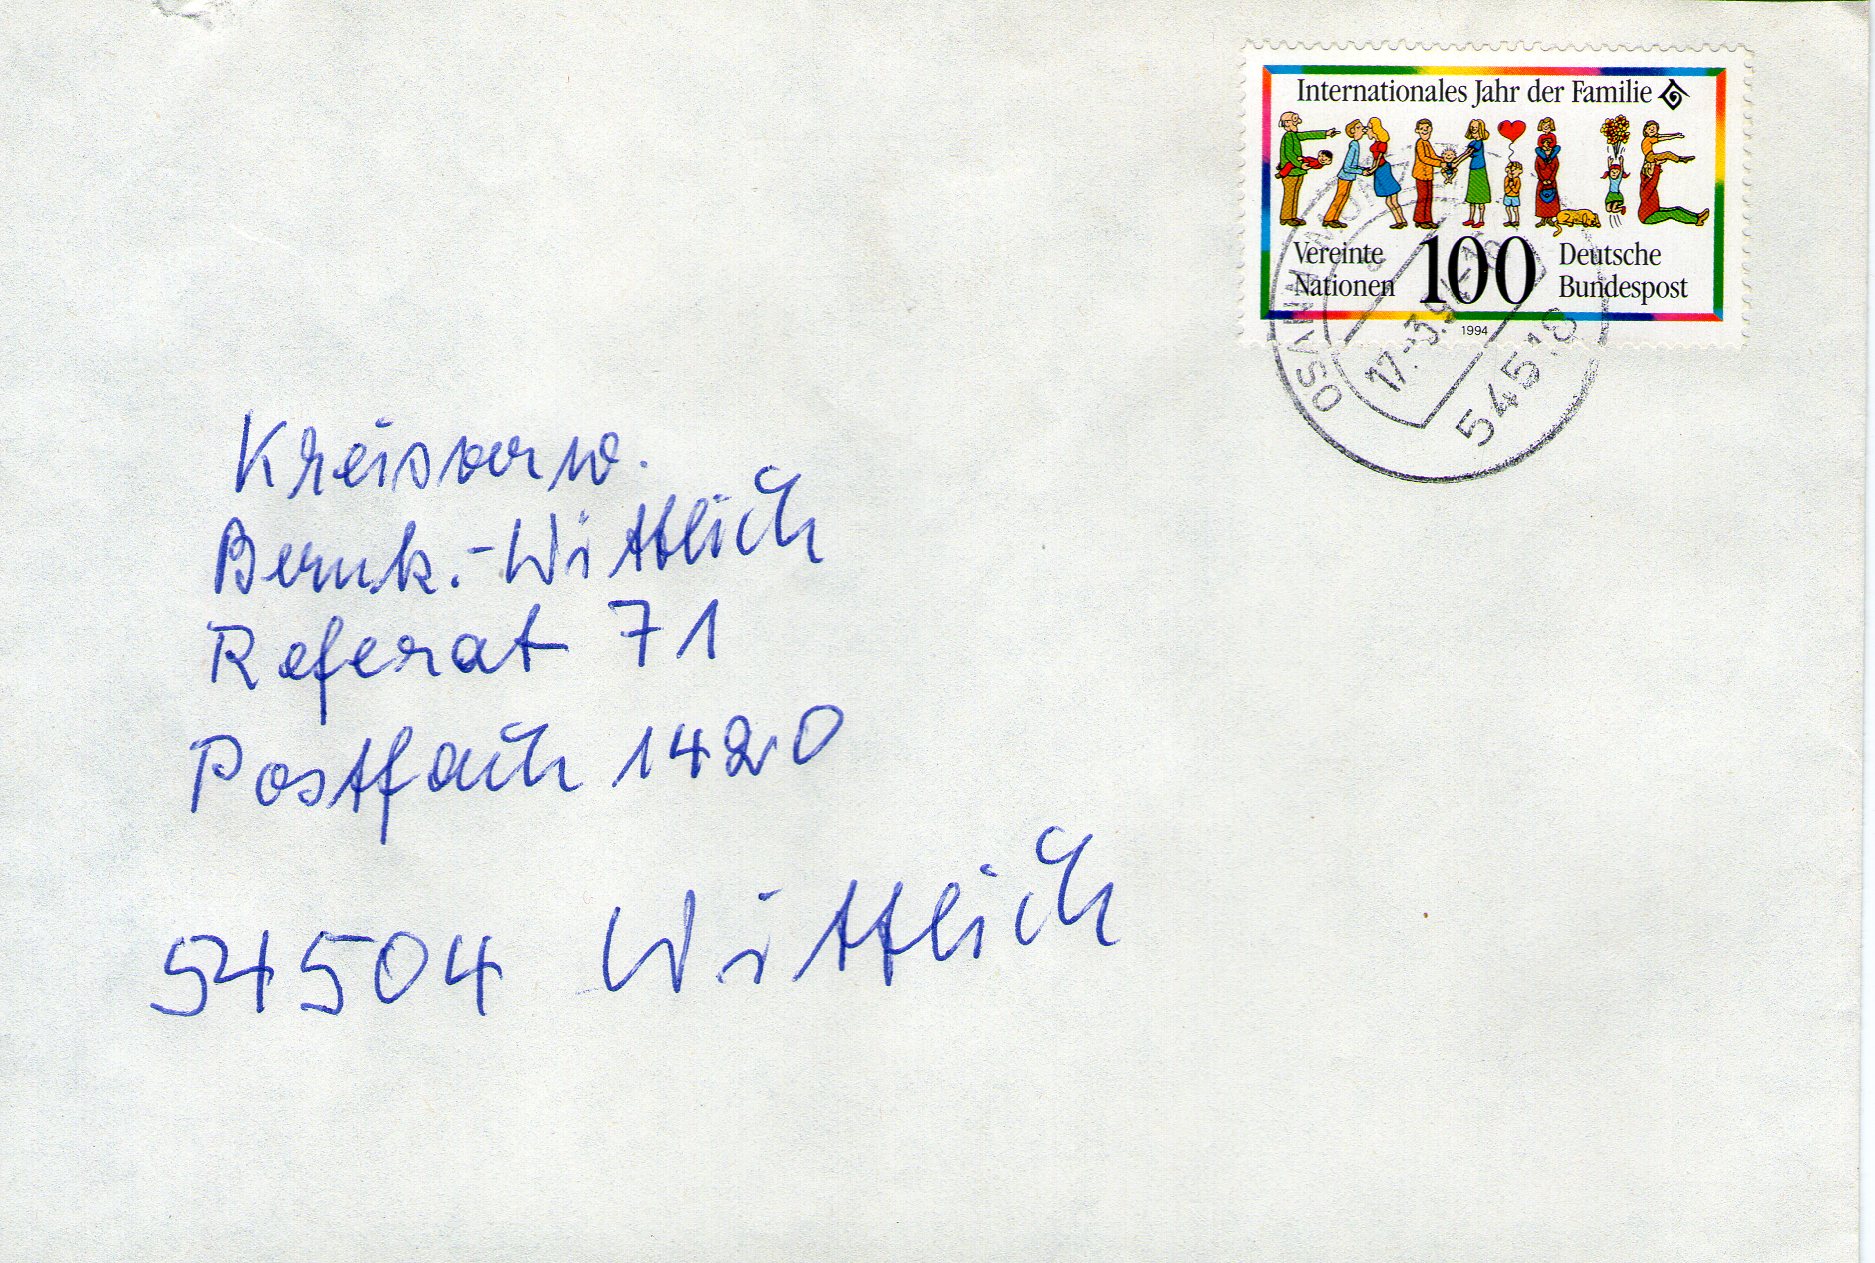 Internationales Jahr der Familie
FAMILIE
Vereinte
Nationen
100
Deutsche
Bundespost
1994
OSANN-MONZEL
17.-3.94-18
54518
Kreisverw.
Bernk.-Wittlich
Referat 71
Postfach 1420
54504 Wittlich